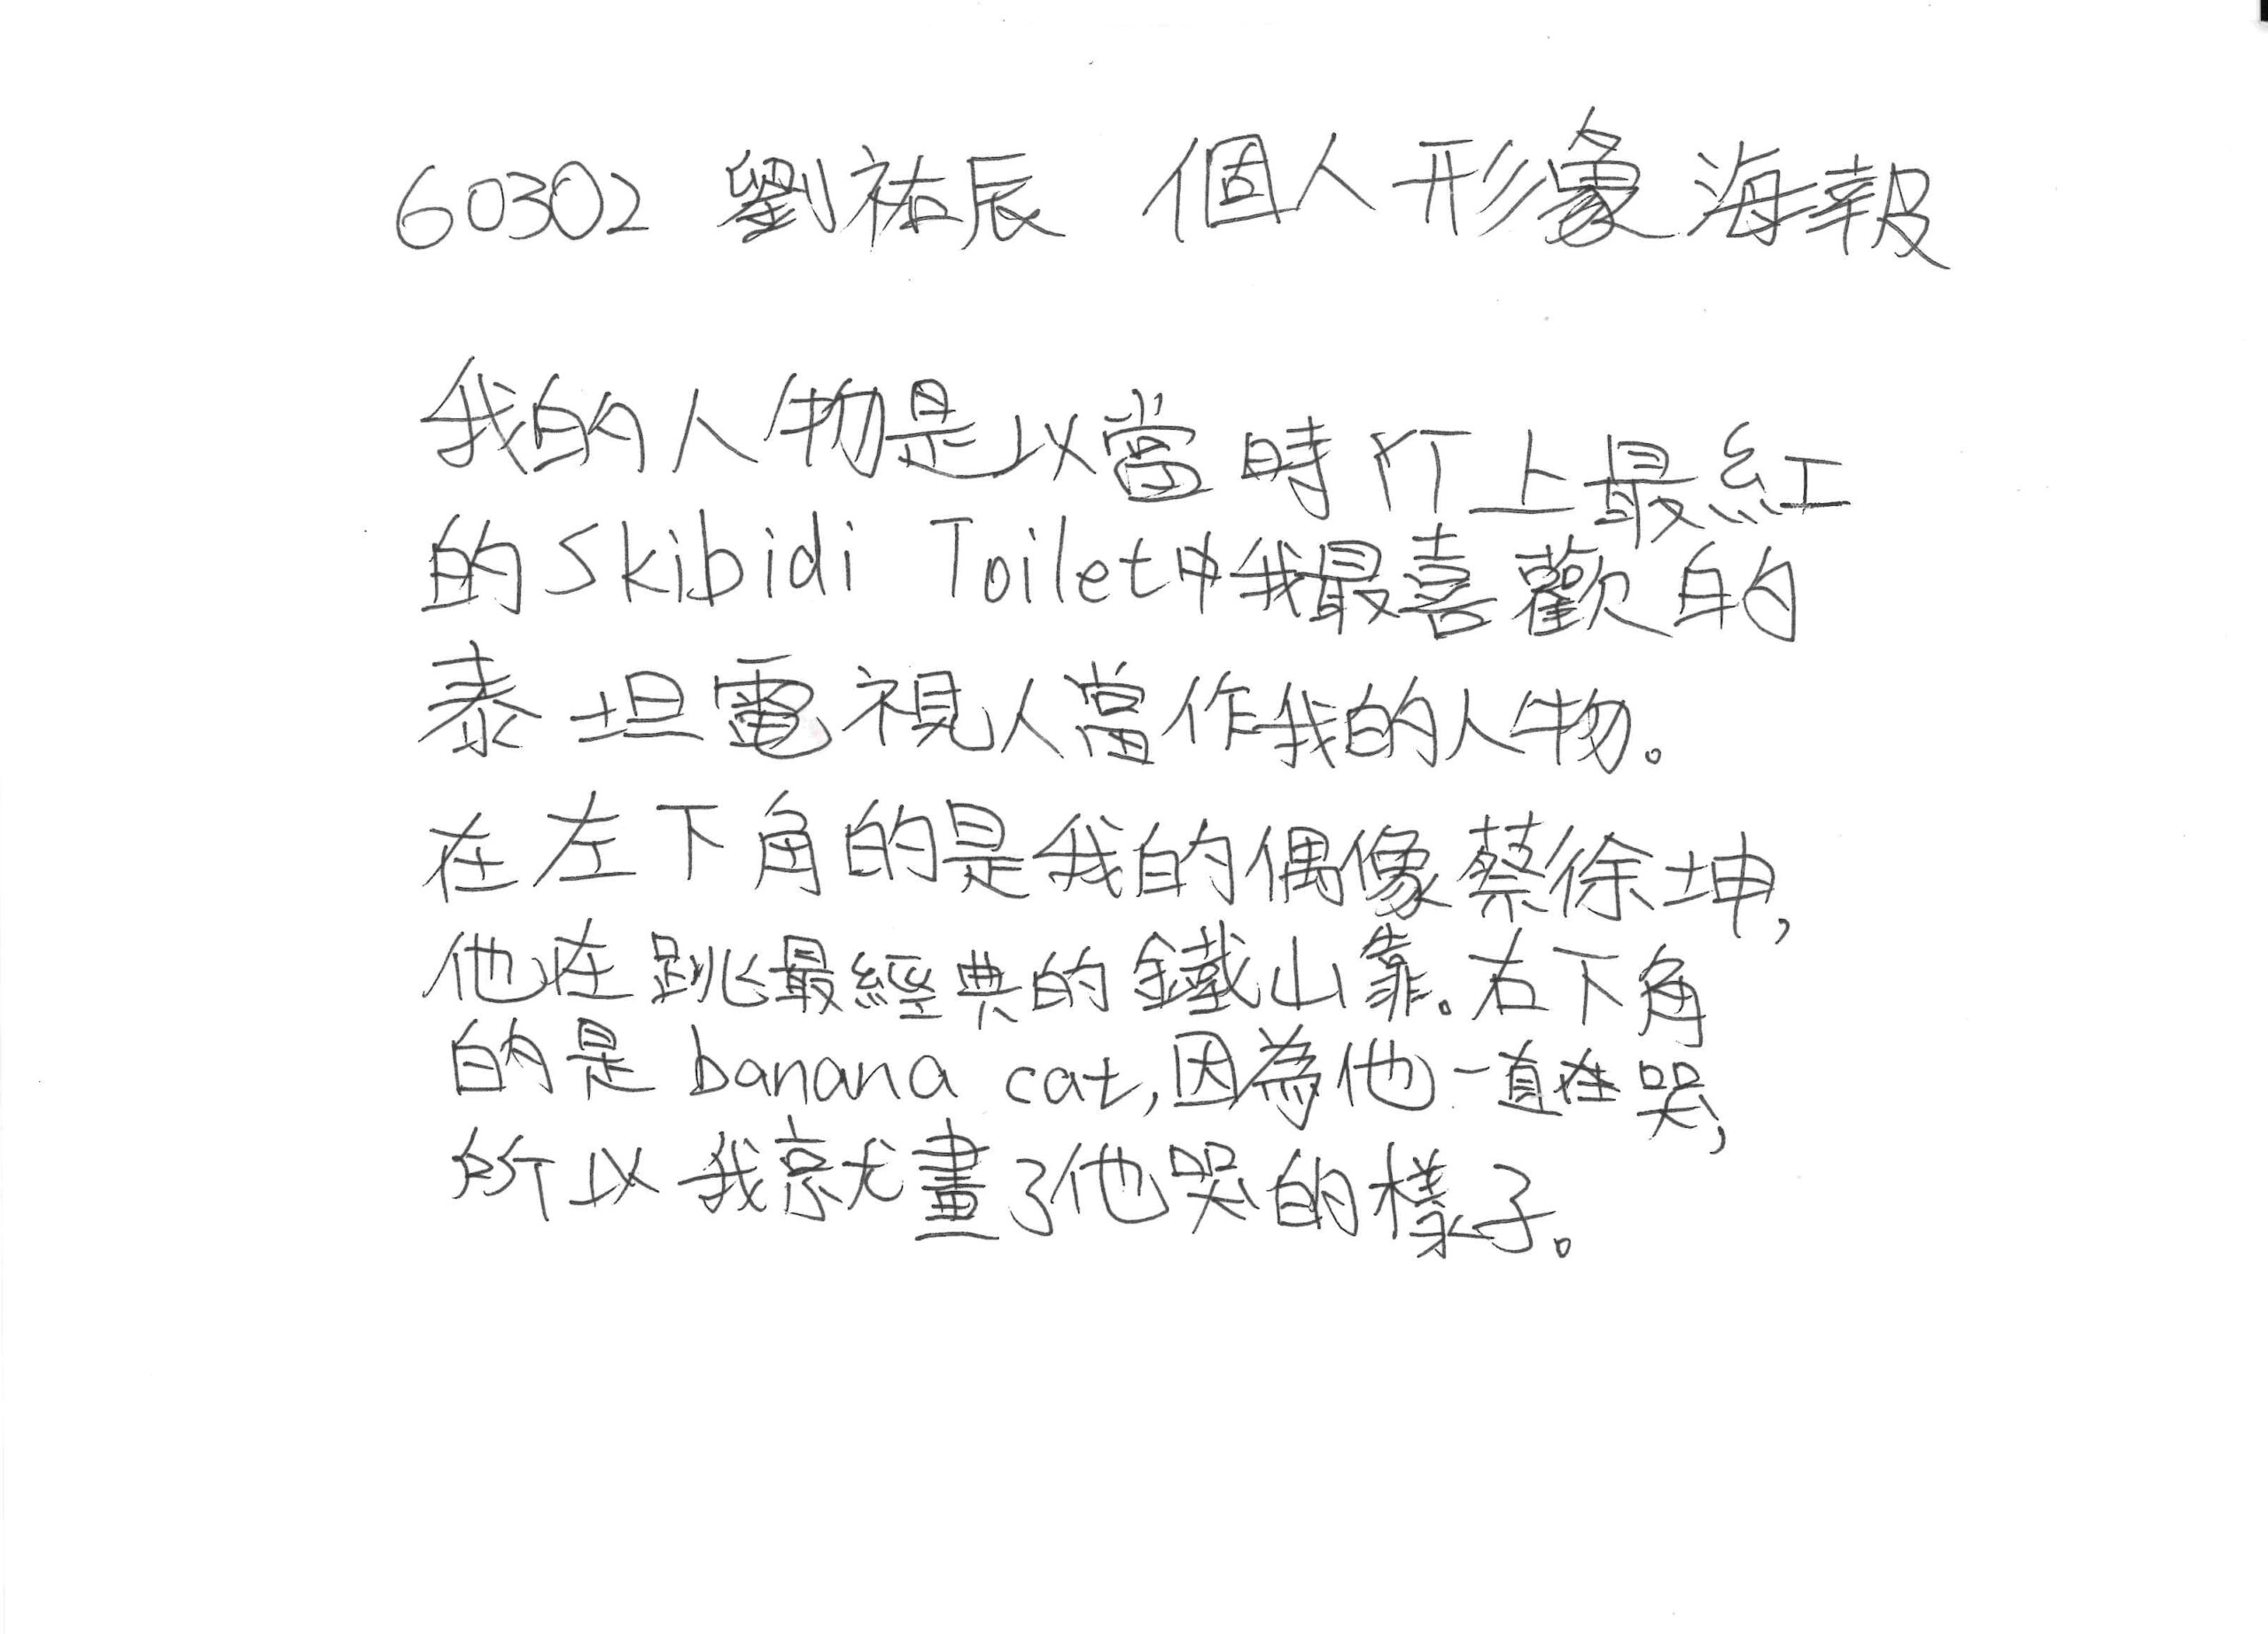 60302 劉祐辰 個人形象海報
我的人物是以當時YT上最紅
的Skibidi Toilet中我最喜歡的
泰坦電視人當作我的人物。
在左下角的是我的偶像蔡徐坤,
他在跳最經典的鐵山靠。右下角
的是banana cat,因為他一直在哭,
所以我就畫了他哭的樣子。